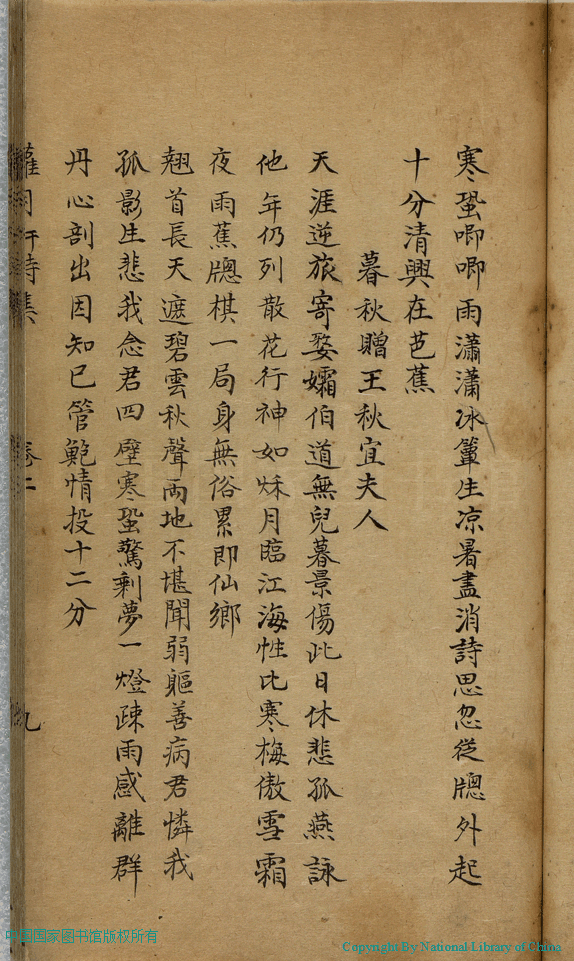 寒蛩唧唧雨瀟瀟冰簟生凉暑盡消詩思忽從牕外起
十分清興在芭蕉
暮秋贈王秋宜夫人
天涯逆旅寄婺孀伯道無兒暮景傷此日休悲孤燕詠
他年仍列散花行神如秋月臨江海性比寒梅傲雪霜
夜雨蕉牕棋一局身無俗累即仙鄉
翹首長天遮碧雲秋聲兩地不堪聞弱軀善病君憐我
孤影生悲我念君四壁寒蛩驚剩夢一燈疎雨感離群
丹心剖出因知己管鮑情投十二分
卷二
九
中国国家图书馆版权所有
Copyright By National Library of China